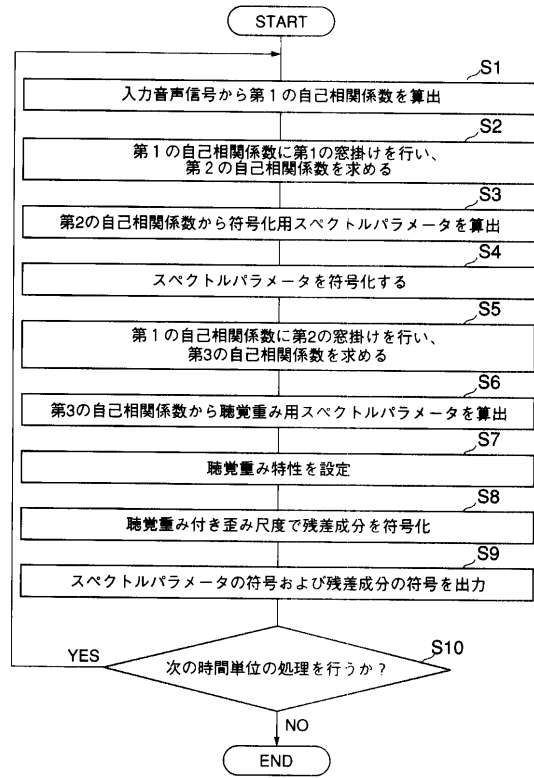 START
S1
入力音声信号から第１の自己相関係数を算出
S2
第１の自己相関係数に第1の窓掛けを行い、
第２の自己相関係数を求める
S3
第2の自己相関係数から符号化用スペクトルパラメータを算出
S4
スペクトルパラメータを符号化する
S5
第１の自己相関係数に第2の窓掛けを行い、
第3の自己相関係数を求める
S6
第3の自己相関係数から聴覚重み用スペクトルパラメータを算出
S7
聴覚重み特性を設定
S8
聴覚重み付き歪み尺度で残差成分を符号化
S9
スペクトルパラメータの符号および残差成分の符号を出力
S10
YES
次の時間単位の処理を行うか？
NO
END